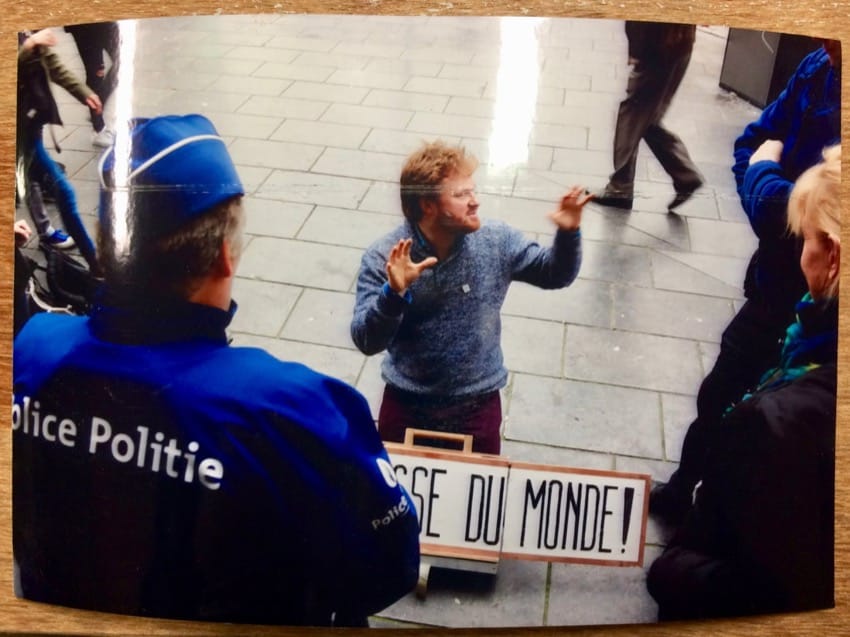 olice Politie
Polic
SSE DU MONDE!